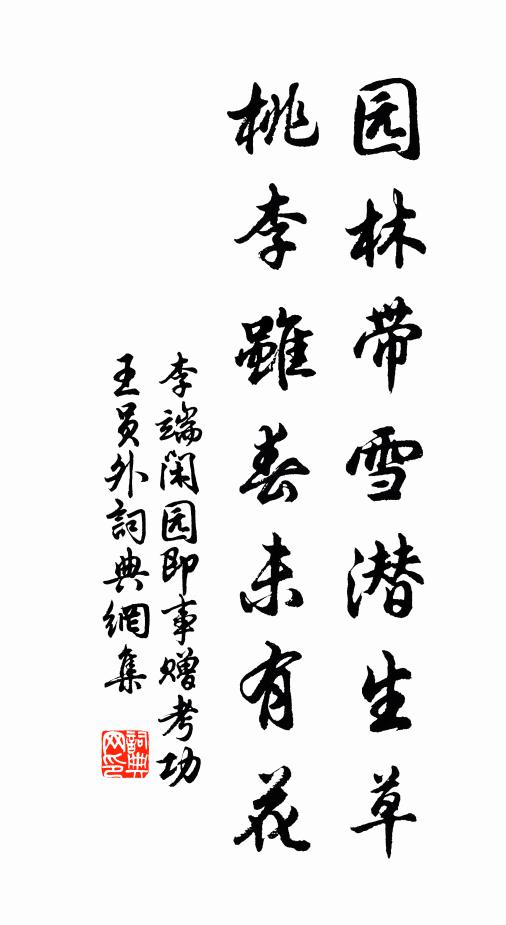 园林带雪潜生草
桃李雖春未有花
李端闲园即事赠考功
王员外詞典網集
詞典网印